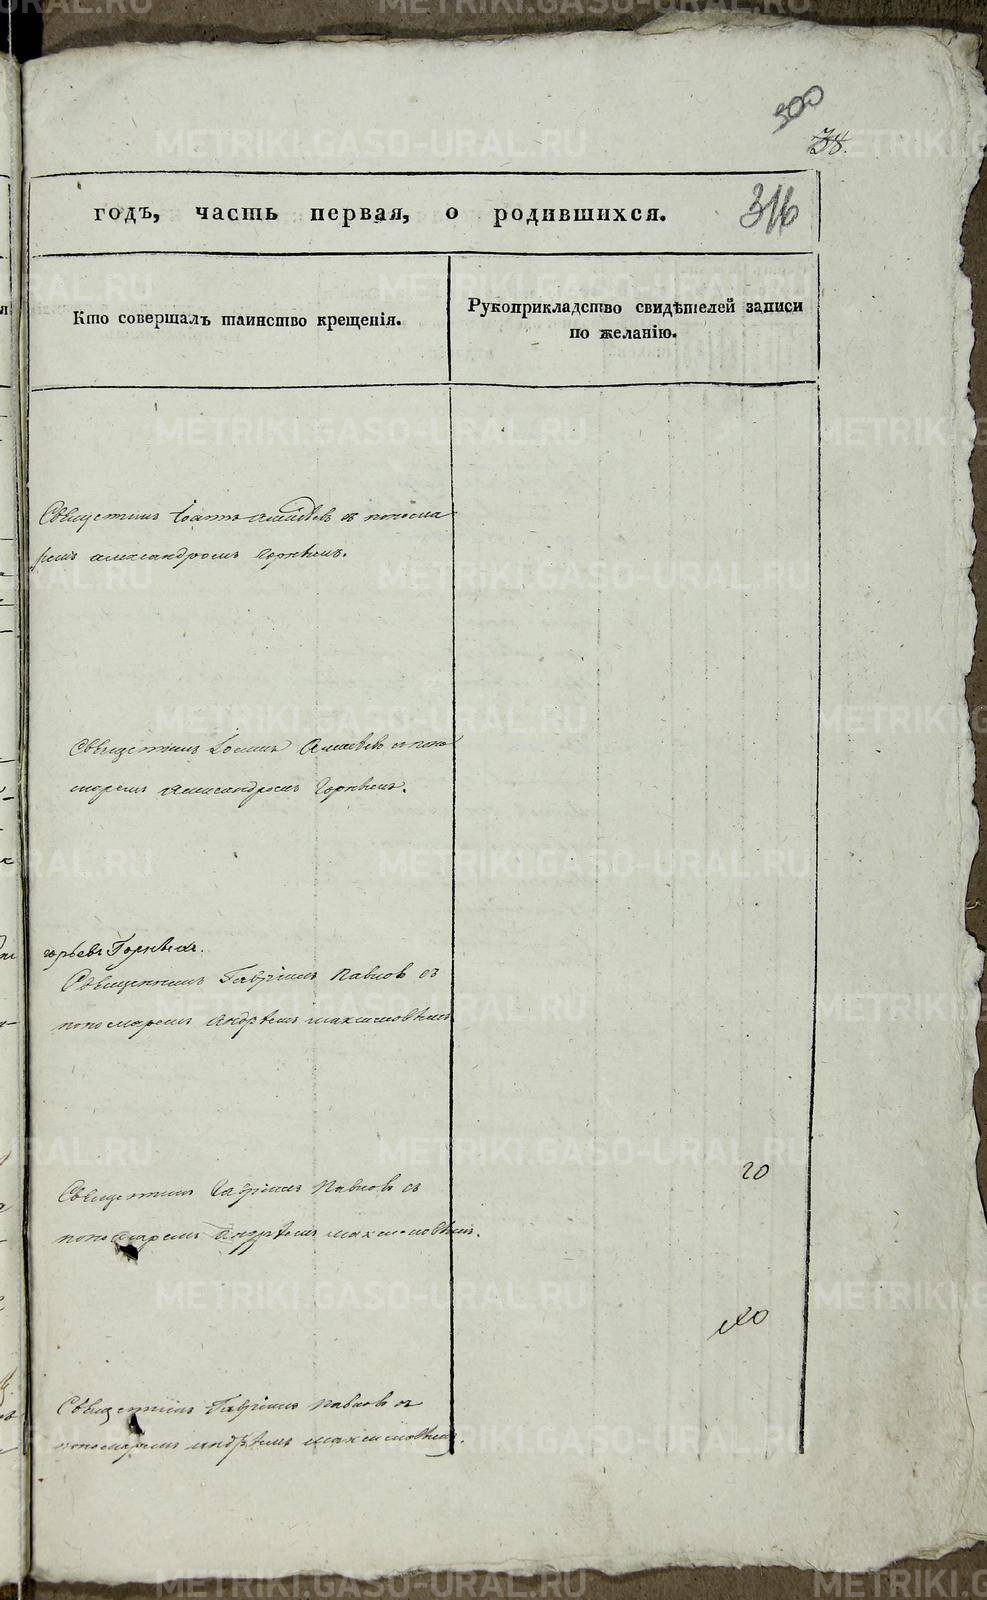 300
38.
316
годъ, часть первая, о родившихся.
Кто совершалъ таинство крещенія.
Рукоприкладство свидѣтелей записи
по желанію.
Священникъ Іоаннъ съ понома
ремъ александромъ Горнымъ.
Священникъ Іоаннъ съ поно
моремъ Александромъ Горнымъ.
Священникъ Гавріилъ Павловъ съ
пономаремъ андреемъ максимовымъ
Священникъ Гавріилъ Павловъ съ
пономаремъ Андреемъ максимовымъ.
20
Священникъ Гавріилъ Павловъ съ
пономаремъ андреемъ максимовымъ.
METRIKI.GASO-URAL.RU